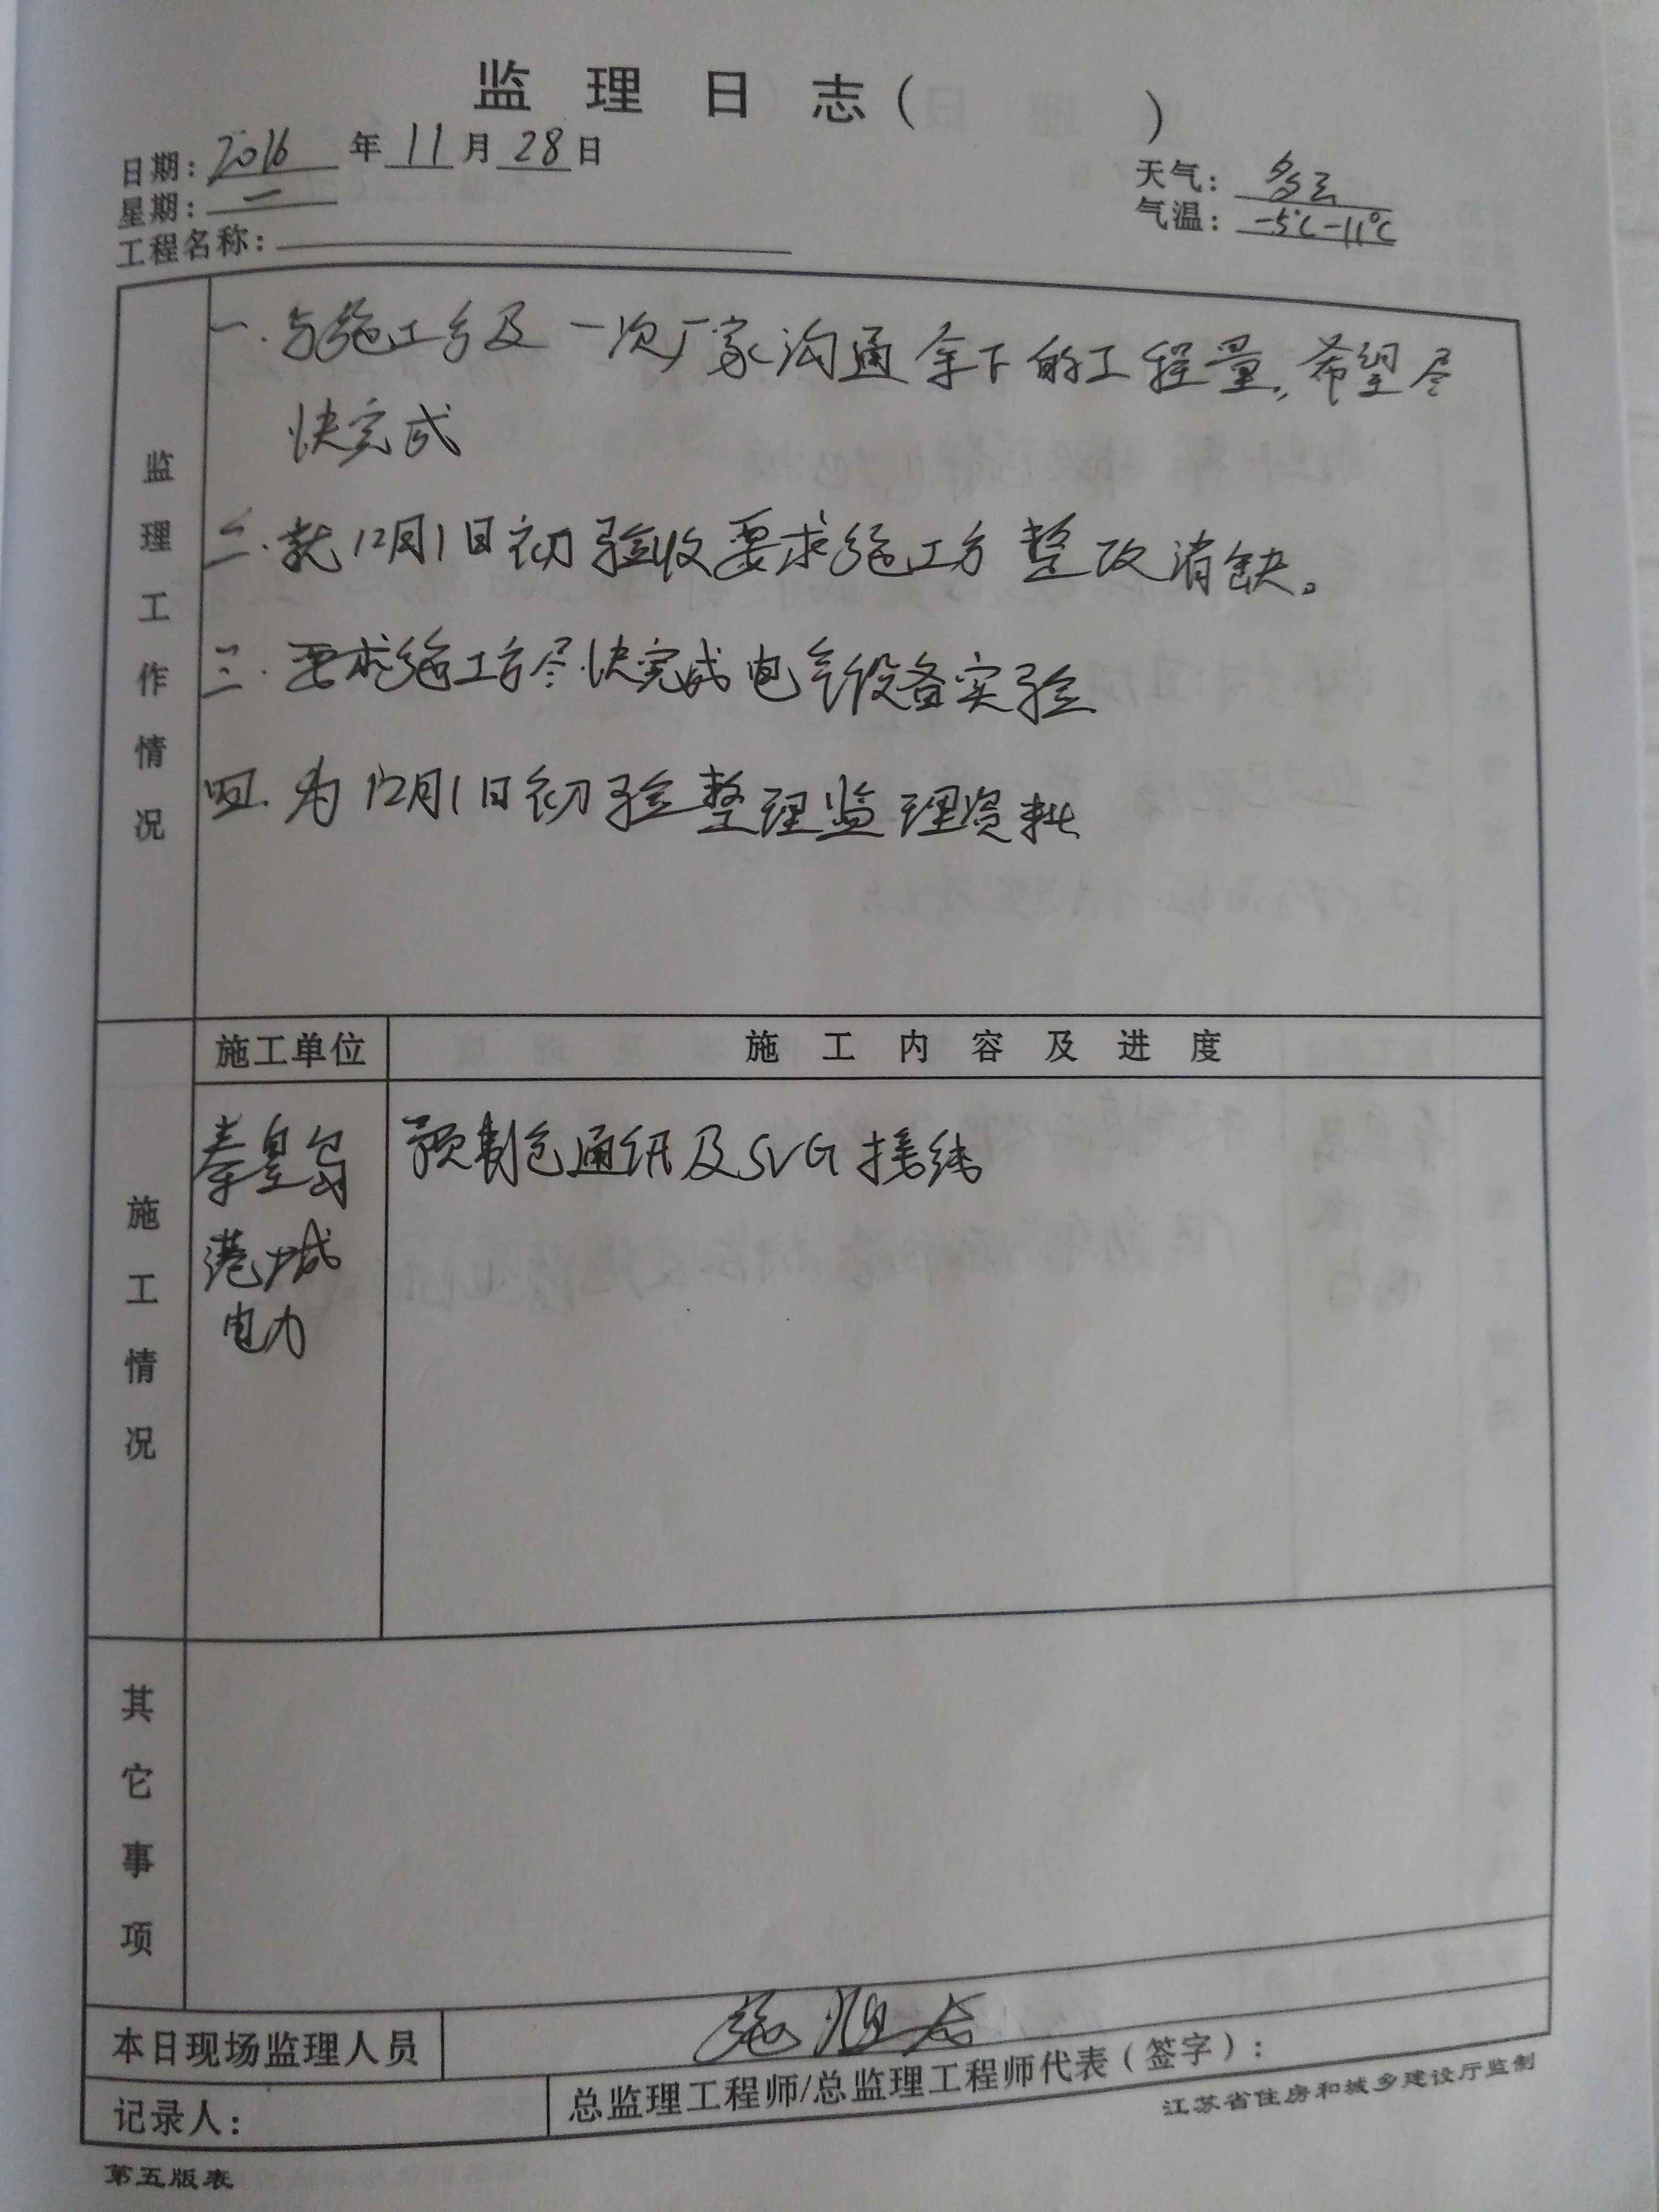 监理日志（ ）
日期：2016年11月28日
天气：多云
星期：一
气温：-5℃-11℃
工程名称：
监理工作情况
一.与施工方及一次厂家沟通余下的工程量，希望尽
快完成
二.就12月1日初验收要求施工方整改消缺。
三.要求施工方尽快完成电气设备实验
四.为12月1日初验整理监理资料
施工单位
施工内容及进度
施工情况
秦皇岛
港城
电力
预制仓通讯及SVG接线
其它事项
本日现场监理人员
施
记录人：
总监理工程师/总监理工程师代表（签字）：
江苏省住房和城乡建设厅监制
第五版表